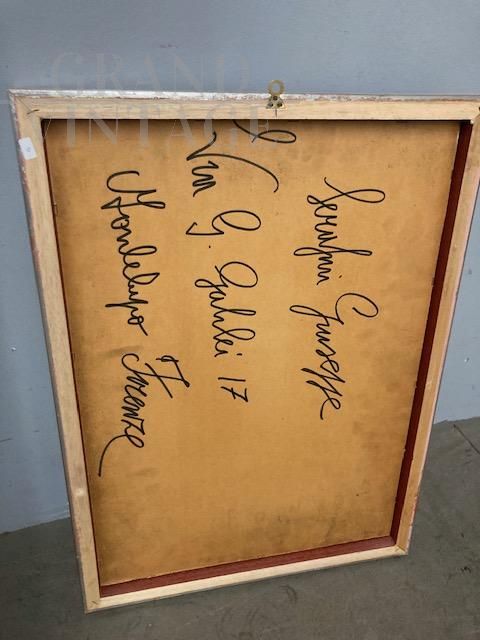 GRAND
VINTAGE
Serafini Giuseppe
Via G. Galilei 17
Montelupo Firenze